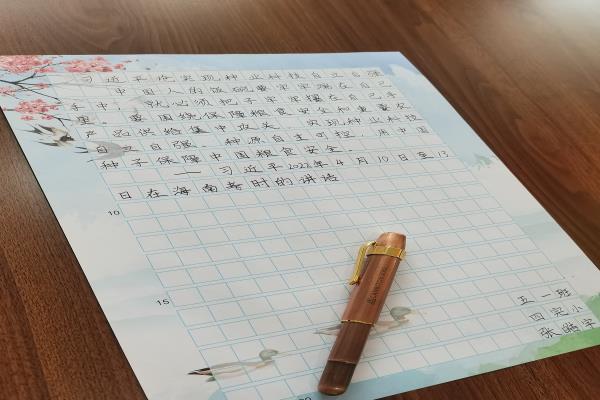 习近平论实现种业科技自立自强
中国人的饭碗要牢牢端在自己
手中，就必须把种子牢牢攥在自己手
里。要围绕保障粮食安全和重要农
产品供给集中攻关，实现种业科技
自立自强、种源自主可控，用中国
种子保障中国粮食安全。
——习近平2022年4月10日至13
日在海南考时的讲话
10
15
20
五一班
四完小
张皓宇